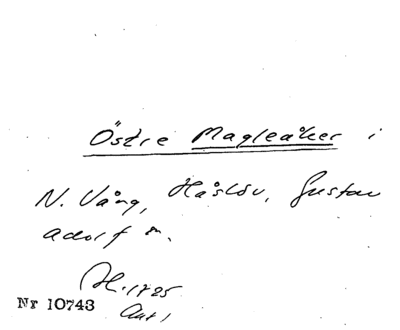 Östre Magleåker i
N. Vång, Håslöv, Gustav
Adolf sn.
H. 1725
Akt 1
Nr 10743